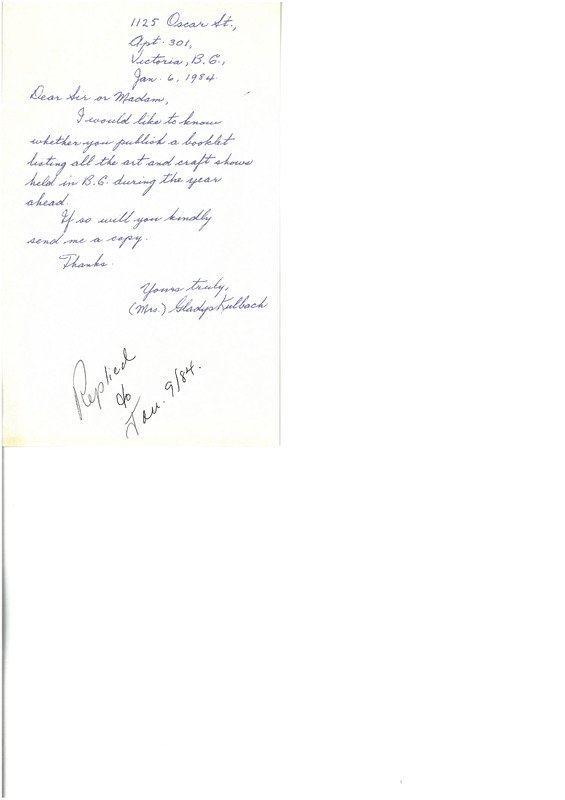 1125 Oscar St.,
Apt. 301,
Victoria, B.C.,
Jan. 6, 1984
Dear Sir or Madam,
I would like to know
whether you publish a booklet
listing all the art and craft shows
held in B.C. during the year
ahead.
If so will you kindly
send me a copy.
Thanks.
Yours truly,
(Mrs.) Gladys Kulbach
Replied
Jan. 9/84.